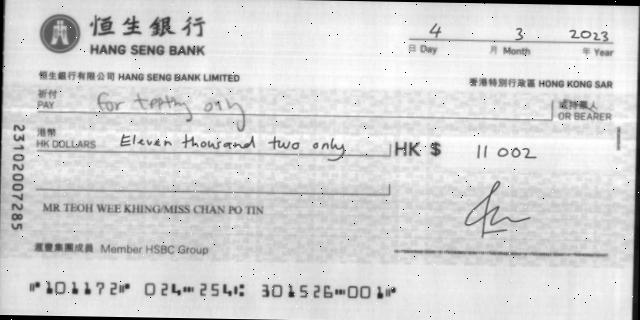 恒生銀行
HANG SENG BANK
4 3 2023
日 Day 月 Month 年 Year
恒生銀行有限公司 HANG SENG BANK LIMITED
香港特別行政區 HONG KONG SAR
祈付
PAY
For only
或持票人
OR BEARER
港幣
HK DOLLARS Eleven thousand two only HK $ 11 002
MR TEOH WEE KHING/MISS CHAN PO TIN
滙豐集團成員 Member HSBC Group
23102007285
⑈101172⑈ 024⑉254⑆ 301526⑉001⑈